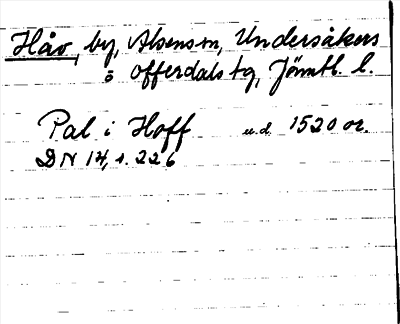 Håv, by, Alsens sn, Undersåkers
o offerdals tg, Jämtl. l.
Pal i Hoff u.d. 1520 or.
DN 14, s. 226